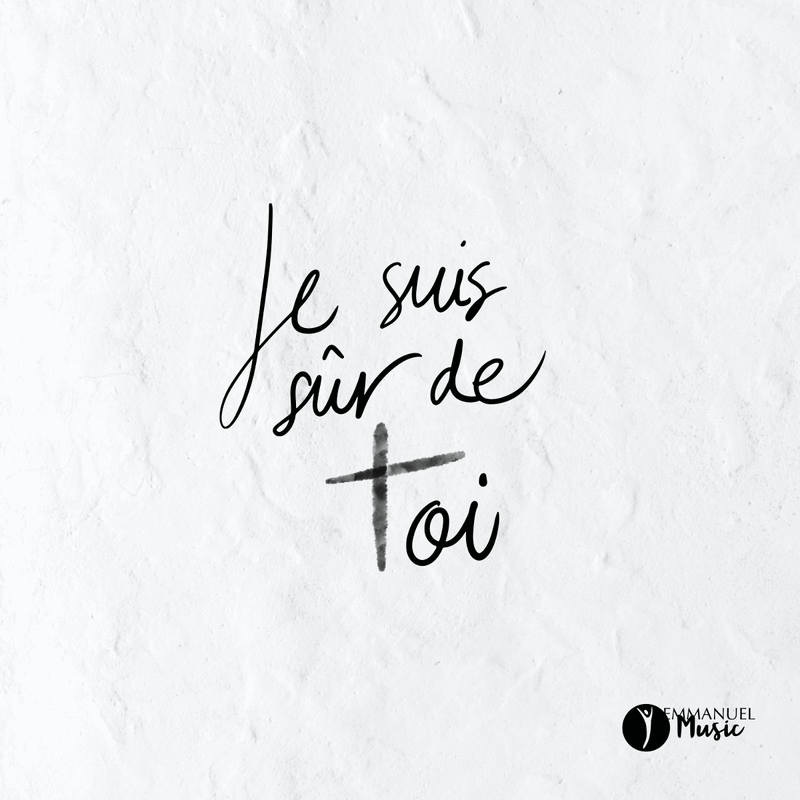 Je suis
sûr de
Toi
EMMANUEL
Music